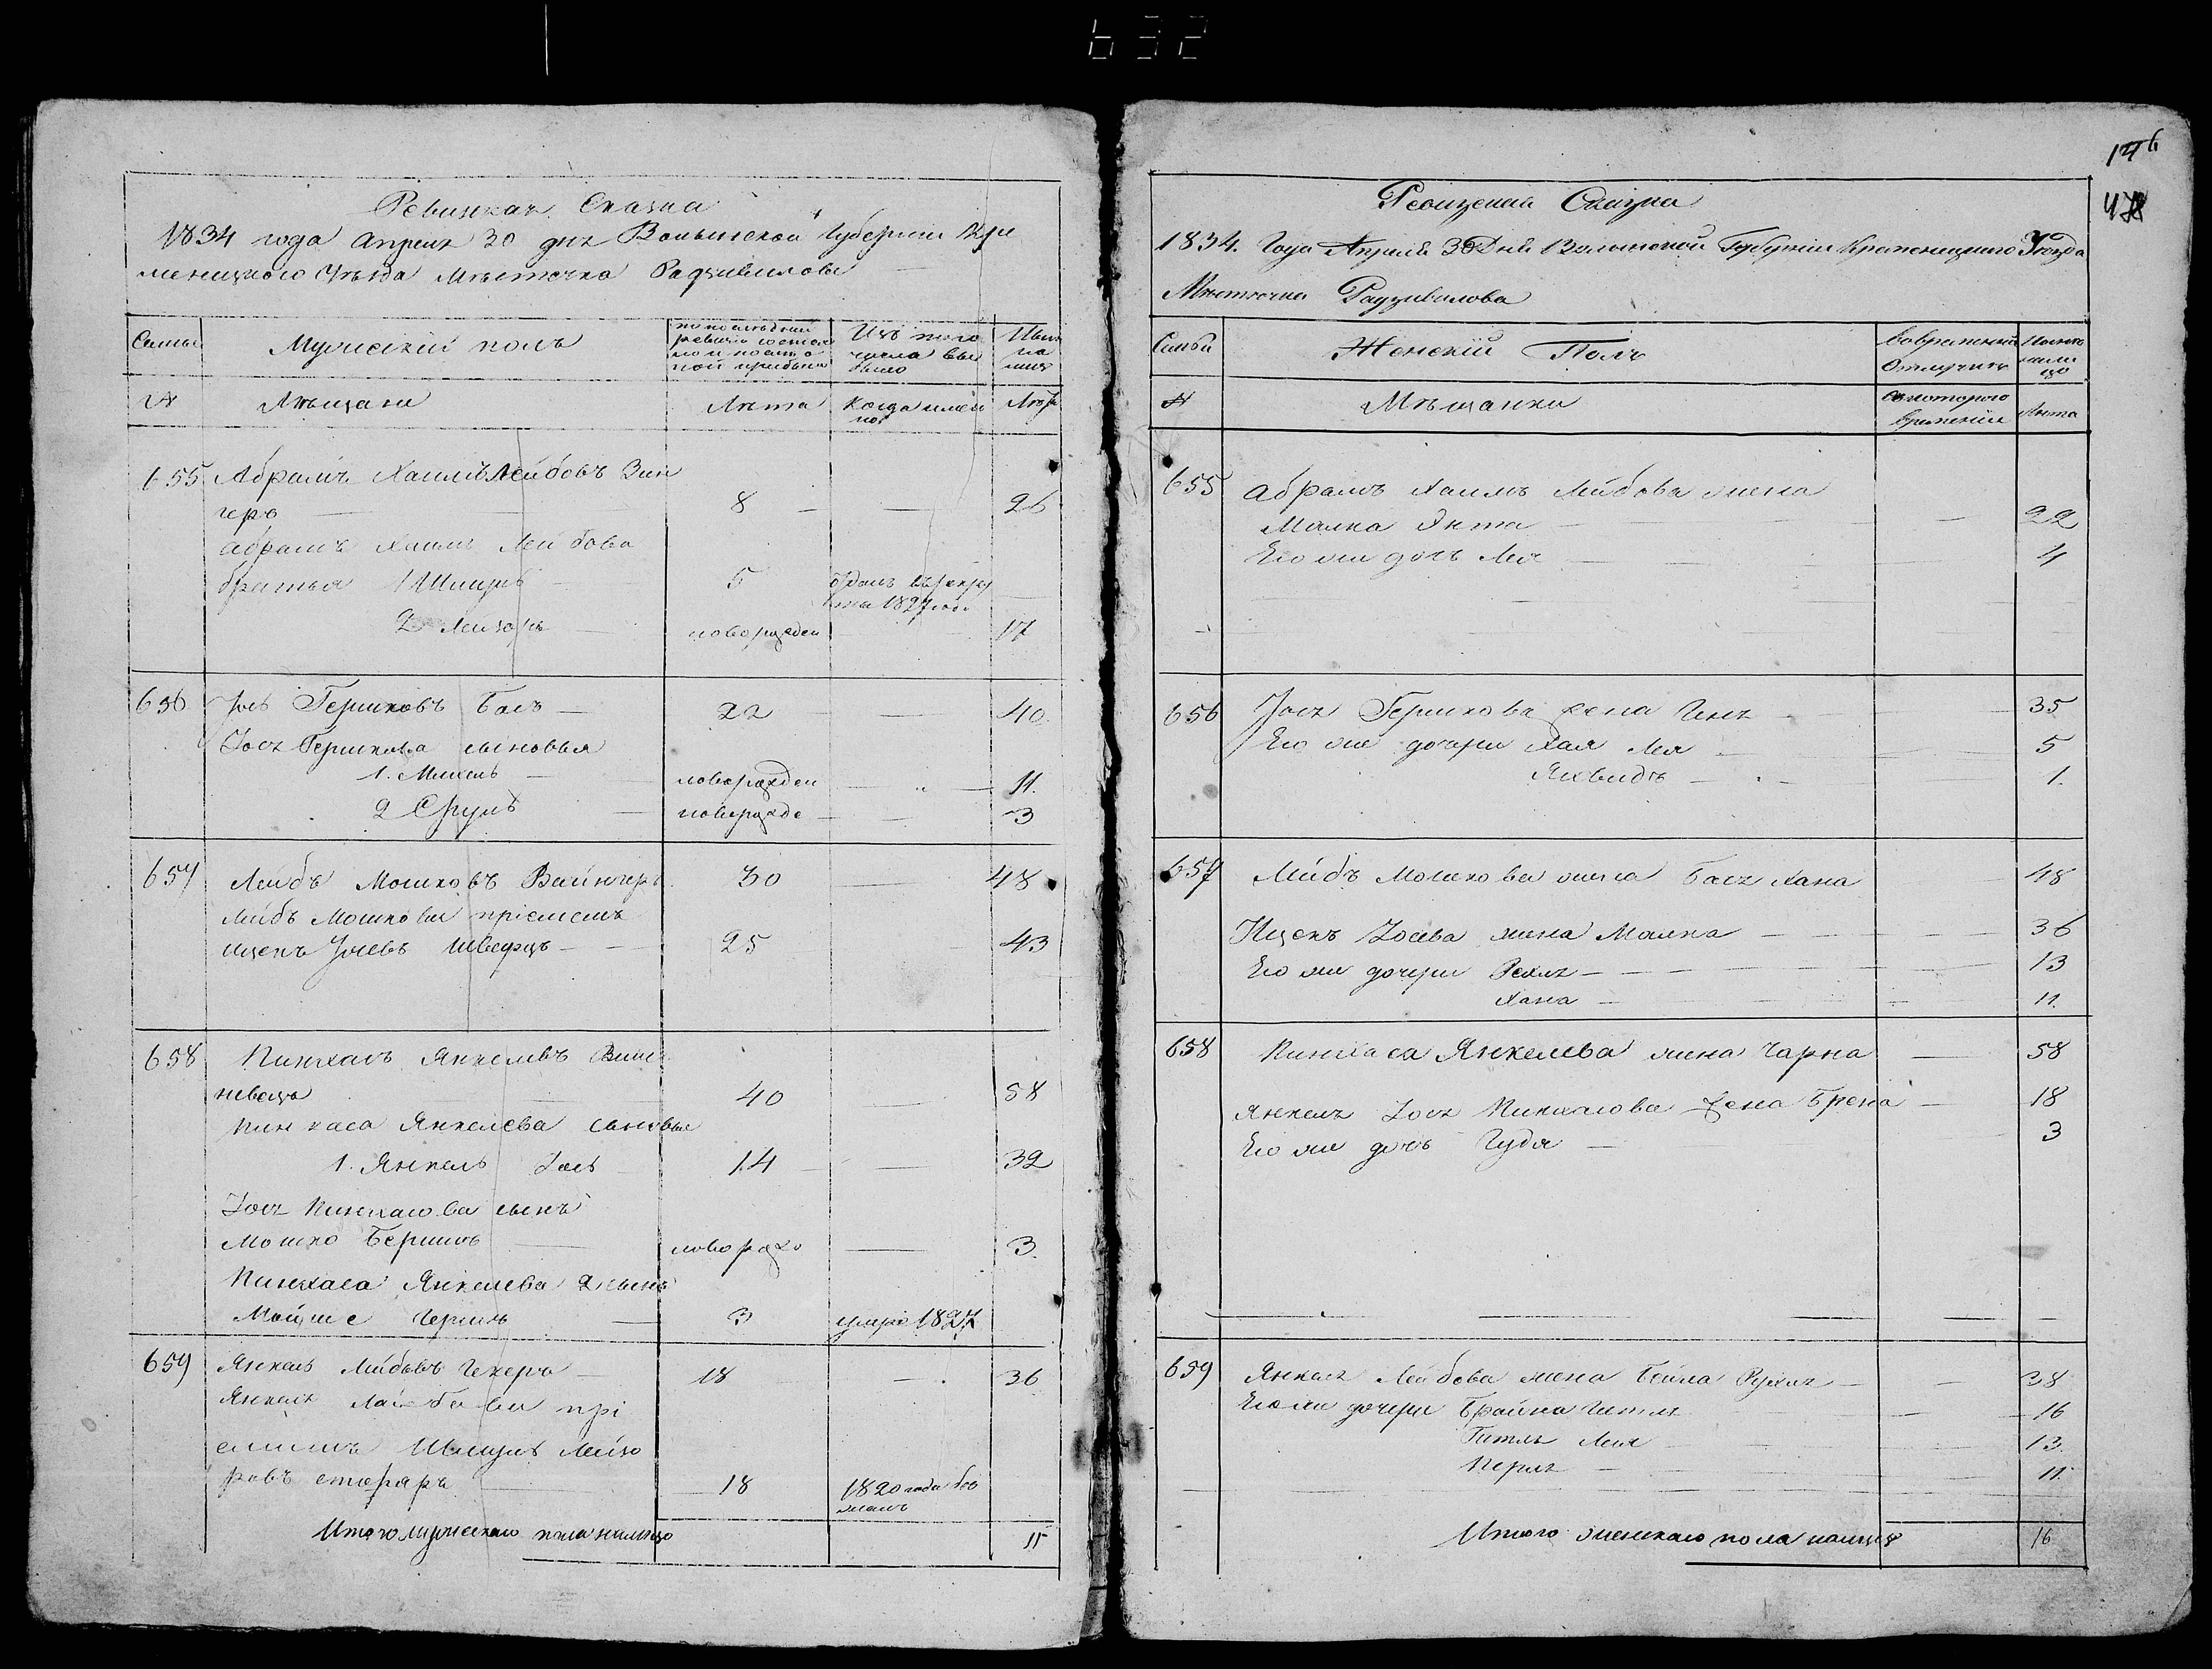 632
Ревизская Сказка
1834 года Апреля 30 дня Волынской Губернии Кре
менецкого Уѣзда Мѣстечка Радзивилова
Семьи
Мужеский полъ
по последней
ревизіи состоя
ло и после
той прибыло
Изъ того
числа вы
было
Ныне
на
лицо
№
Мѣщане
Лѣта
Когда имен
но
Лѣта
655 Абрамъ Хаимъ Лейбовъ Зин
геръ — 8 — — 26
Абрамъ Хаима Лейбова
братья 1 Шмуль 5 отданъ въ рекру
ты 1827 года —
2 Лейзоръ — новорожден — 17
656 Іось Гершковъ Басъ — 22 — 40
Іося Гершкова сыновья
1. Михель — новорожден — 11.
2 Сруль — новорожде — 3
657 Лейбъ Мошковъ Вайнгеръ 30 — 48
Лейбъ Мошкова пріемышъ
Ицекъ Іосевъ Шварцъ — 25 43
658 Пинхасъ Янкелевъ Виш
невецъ 40 — 58
Пинхаса Янкелева сыновья
1. Янкель Іось — 14 — 32
Іося Пинхасова сынъ
Мошко Бершъ — новорожд — 3.
Пинхаса Янкелева 2 сынъ
Мойше Гершъ — 3 умре 1827
659 Янкель Лейбовъ Чехеръ — 18 — 36
Янкеля Лейбова прі
емышъ Шмуль Лейзо
ровъ столяръ — 18 1820 года бѣ
жалъ
Итого мужескаго пола налицо 11
146
Ревизская Сказка
1834. Года Апреля 30 Дня Волынской Губерніи Кременецкого Уѣзда
Мѣстечка Радзивилова
Семьи
Женскій Полъ
Во временной
Отлучкѣ
Ныне
нали
цо
№
Мѣщанки
Съ которого
времени
Лѣта
655 Абрамъ Хаимъ Лейбова жена
Малка Энта — — 22
Его же дочь Лея — 4
656 Іося Гершкова жена Геня 35
Его же дочери Хая Лея — 5
Яхведъ — 1.
657 Лейбъ Мошкова жена Бася Хана — 48
Ицекъ Іосева жена Малка — 36
Его же дочери Рехля — 13
Хана — 11.
658 Пинхаса Янкелева жена Чарна — 58
Янкеля Іося Пинхасова жена Брена — 18
Его же дочь Гудя — 3
659 Янкеля Лейбова жена Бейла Рухля — 38
Его же дочери Брайна Гитля — 16
Гитль Лея 13.
Перля — 11.
Итого женскаго пола налицо 16